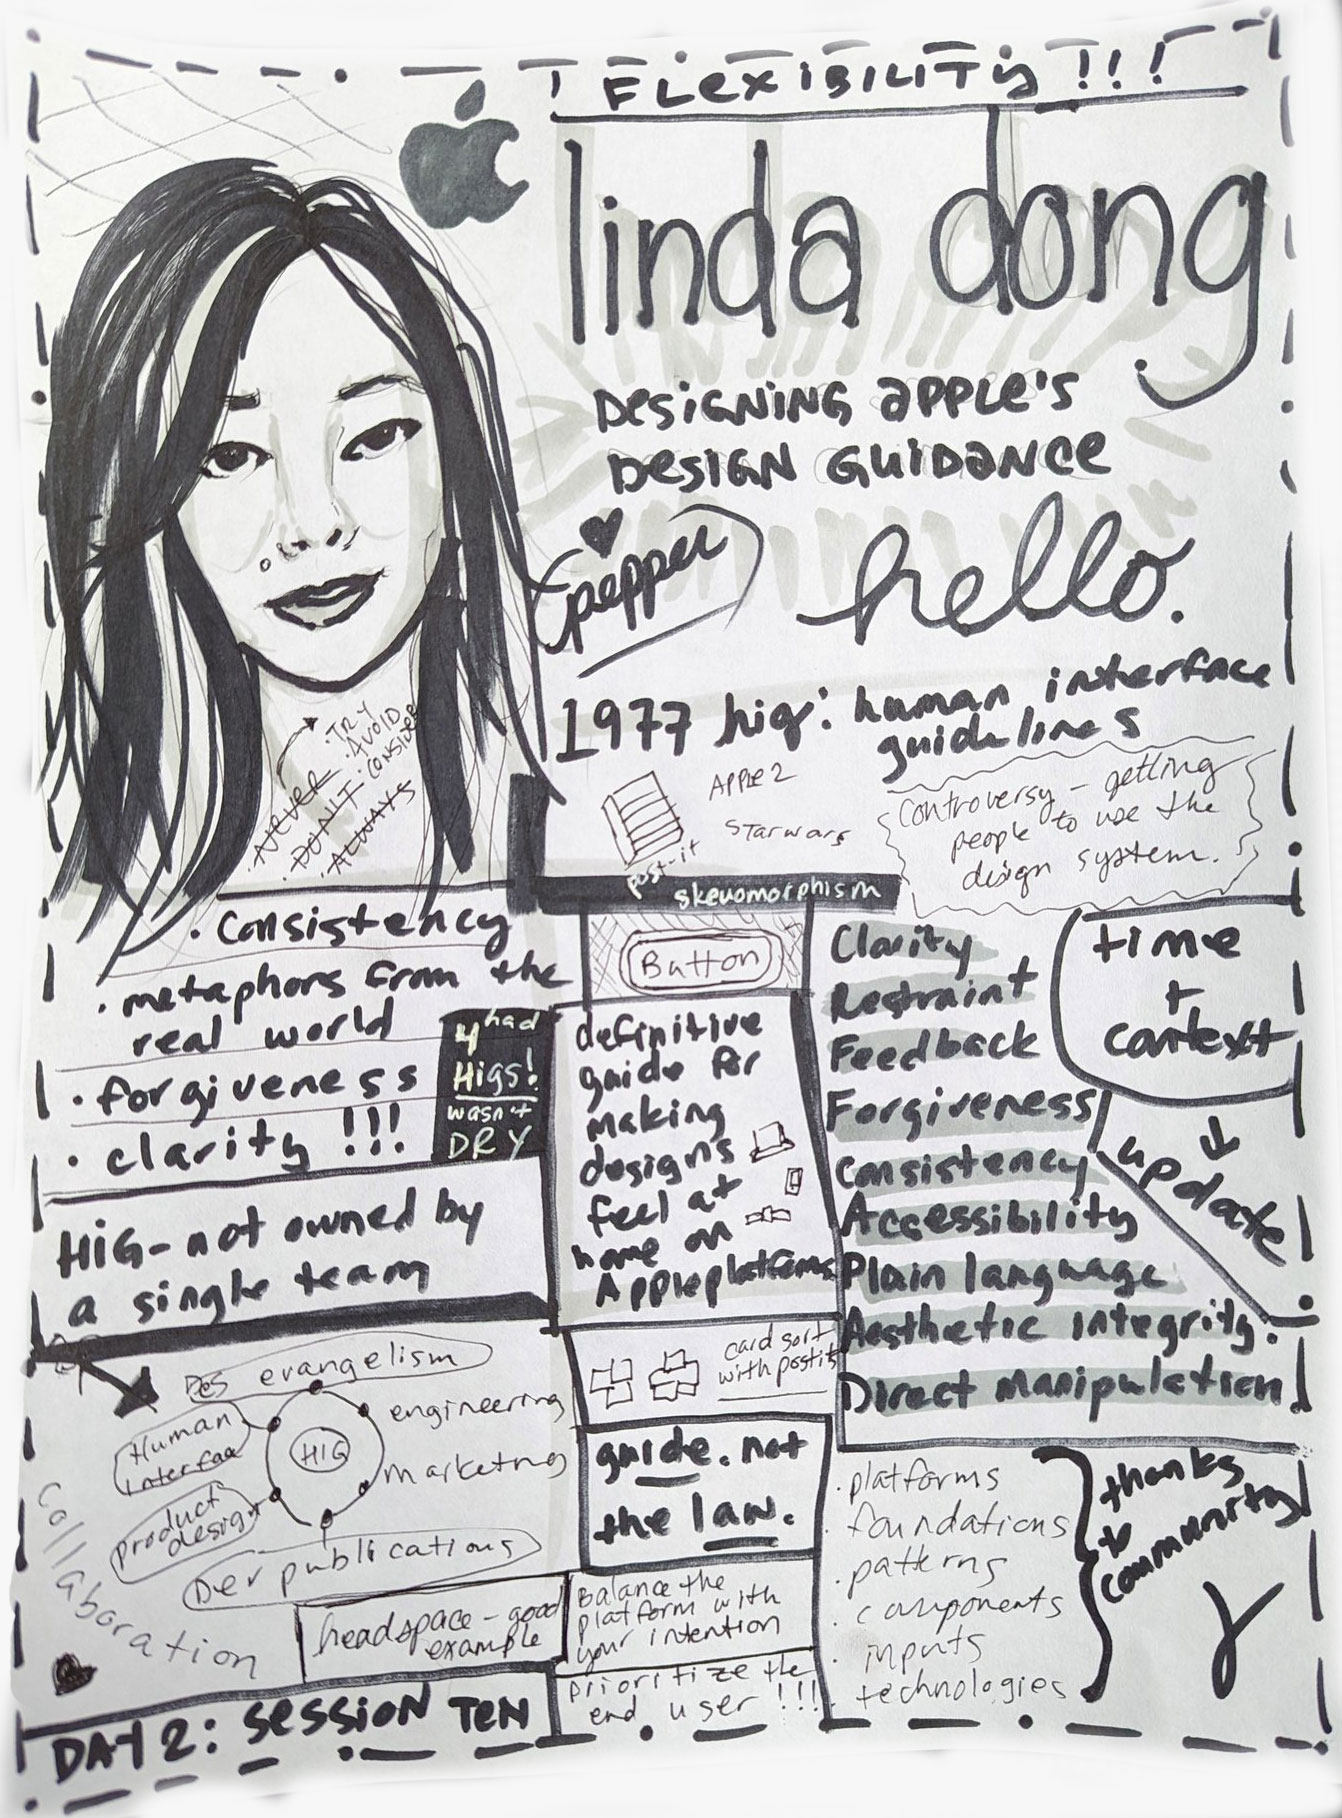 FLEXIBILITY !!!
linda dong
DESIGNING APPLE'S
DESIGN GUIDANCE
pepper
hello.
1977 hig: human interface
guidelines
APPLE 2
STARWARS
post-it
controversy - getting
people to use the
design system.
TRY
AVOID
CONSIDER
NEVER
DON'T
ALWAYS
skeuomorphism
Button
· Consistency
· metaphors from the
real world
· forgiveness
· clarity !!!
4 had
HIGs!
wasn't
DRY
HIG - not owned by
a single team
definitive
guide for
making
designs
feel at
home on
Apple platforms
Clarity
Restraint
Feedback
Forgiveness
Consistency
Accessibility
Plain language
Aesthetic integrity.
Direct Manipulation
time
+
context
update
Des evangelism
engineering
Human
interface
HIG
marketing
product
design
Dev publications
collaboration
headspace - good
example
card sort
with postits
guide. not
the law.
Balance the
platform with
your intention
prioritize the
end user !!!
· platforms
· foundations
· patterns
· components
· inputs
· technologies
thanks
to
community
DAY 2: SESSION TEN